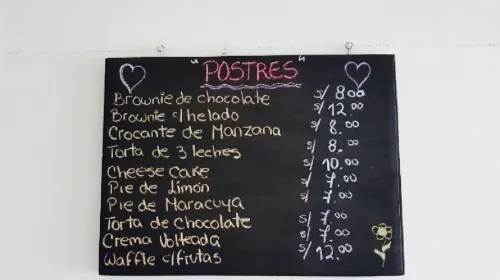 "POSTRES"
Brownie de chocolate S/ 8.00
Brownie c/helado S/ 12.00
Crocante de Manzana S/ 8.00
Torta de 3 leches S/ 8.00
Cheese Cake S/ 10.00
Pie de Limón S/ 7.00
Pie de Maracuya S/ 7.00
Torta de Chocolate S/ 7.00
Crema Volteada S/ 7.00
Waffle c/frutas S/ 12.00